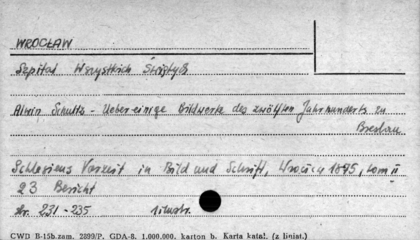 WROCŁAW
Szpital Wszystkich Świętych
Alwin Schultz - Ueber einige Bildwerke des zwölften Jahrhunderts zu
Breslau
Schlesiens Vorzeit in Bild und Schrift, 1875, tom II
23 Bericht
str. 231-235 1 ilustr.
CWD B-15b. zam. 2899/P. GDA-8. 1.000.000. karton b. Karta katal. (z liniat.)